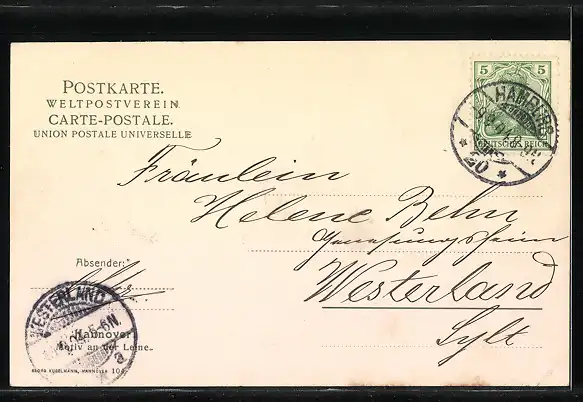 POSTKARTE.
WELTPOSTVEREIN
CARTE-POSTALE.
UNION POSTALE UNIVERSELLE
5 5
DEUTSCHES REICH
HAMBURG
* 20 *
Fräulein
Helene Behn
Genesungsheim
Westerland
Sylt
Absender:
WESTERLAND
5-6N.
a
Hannover
Motiv an der Leine.
GEORG KUGELMANN, HANNOVER 104